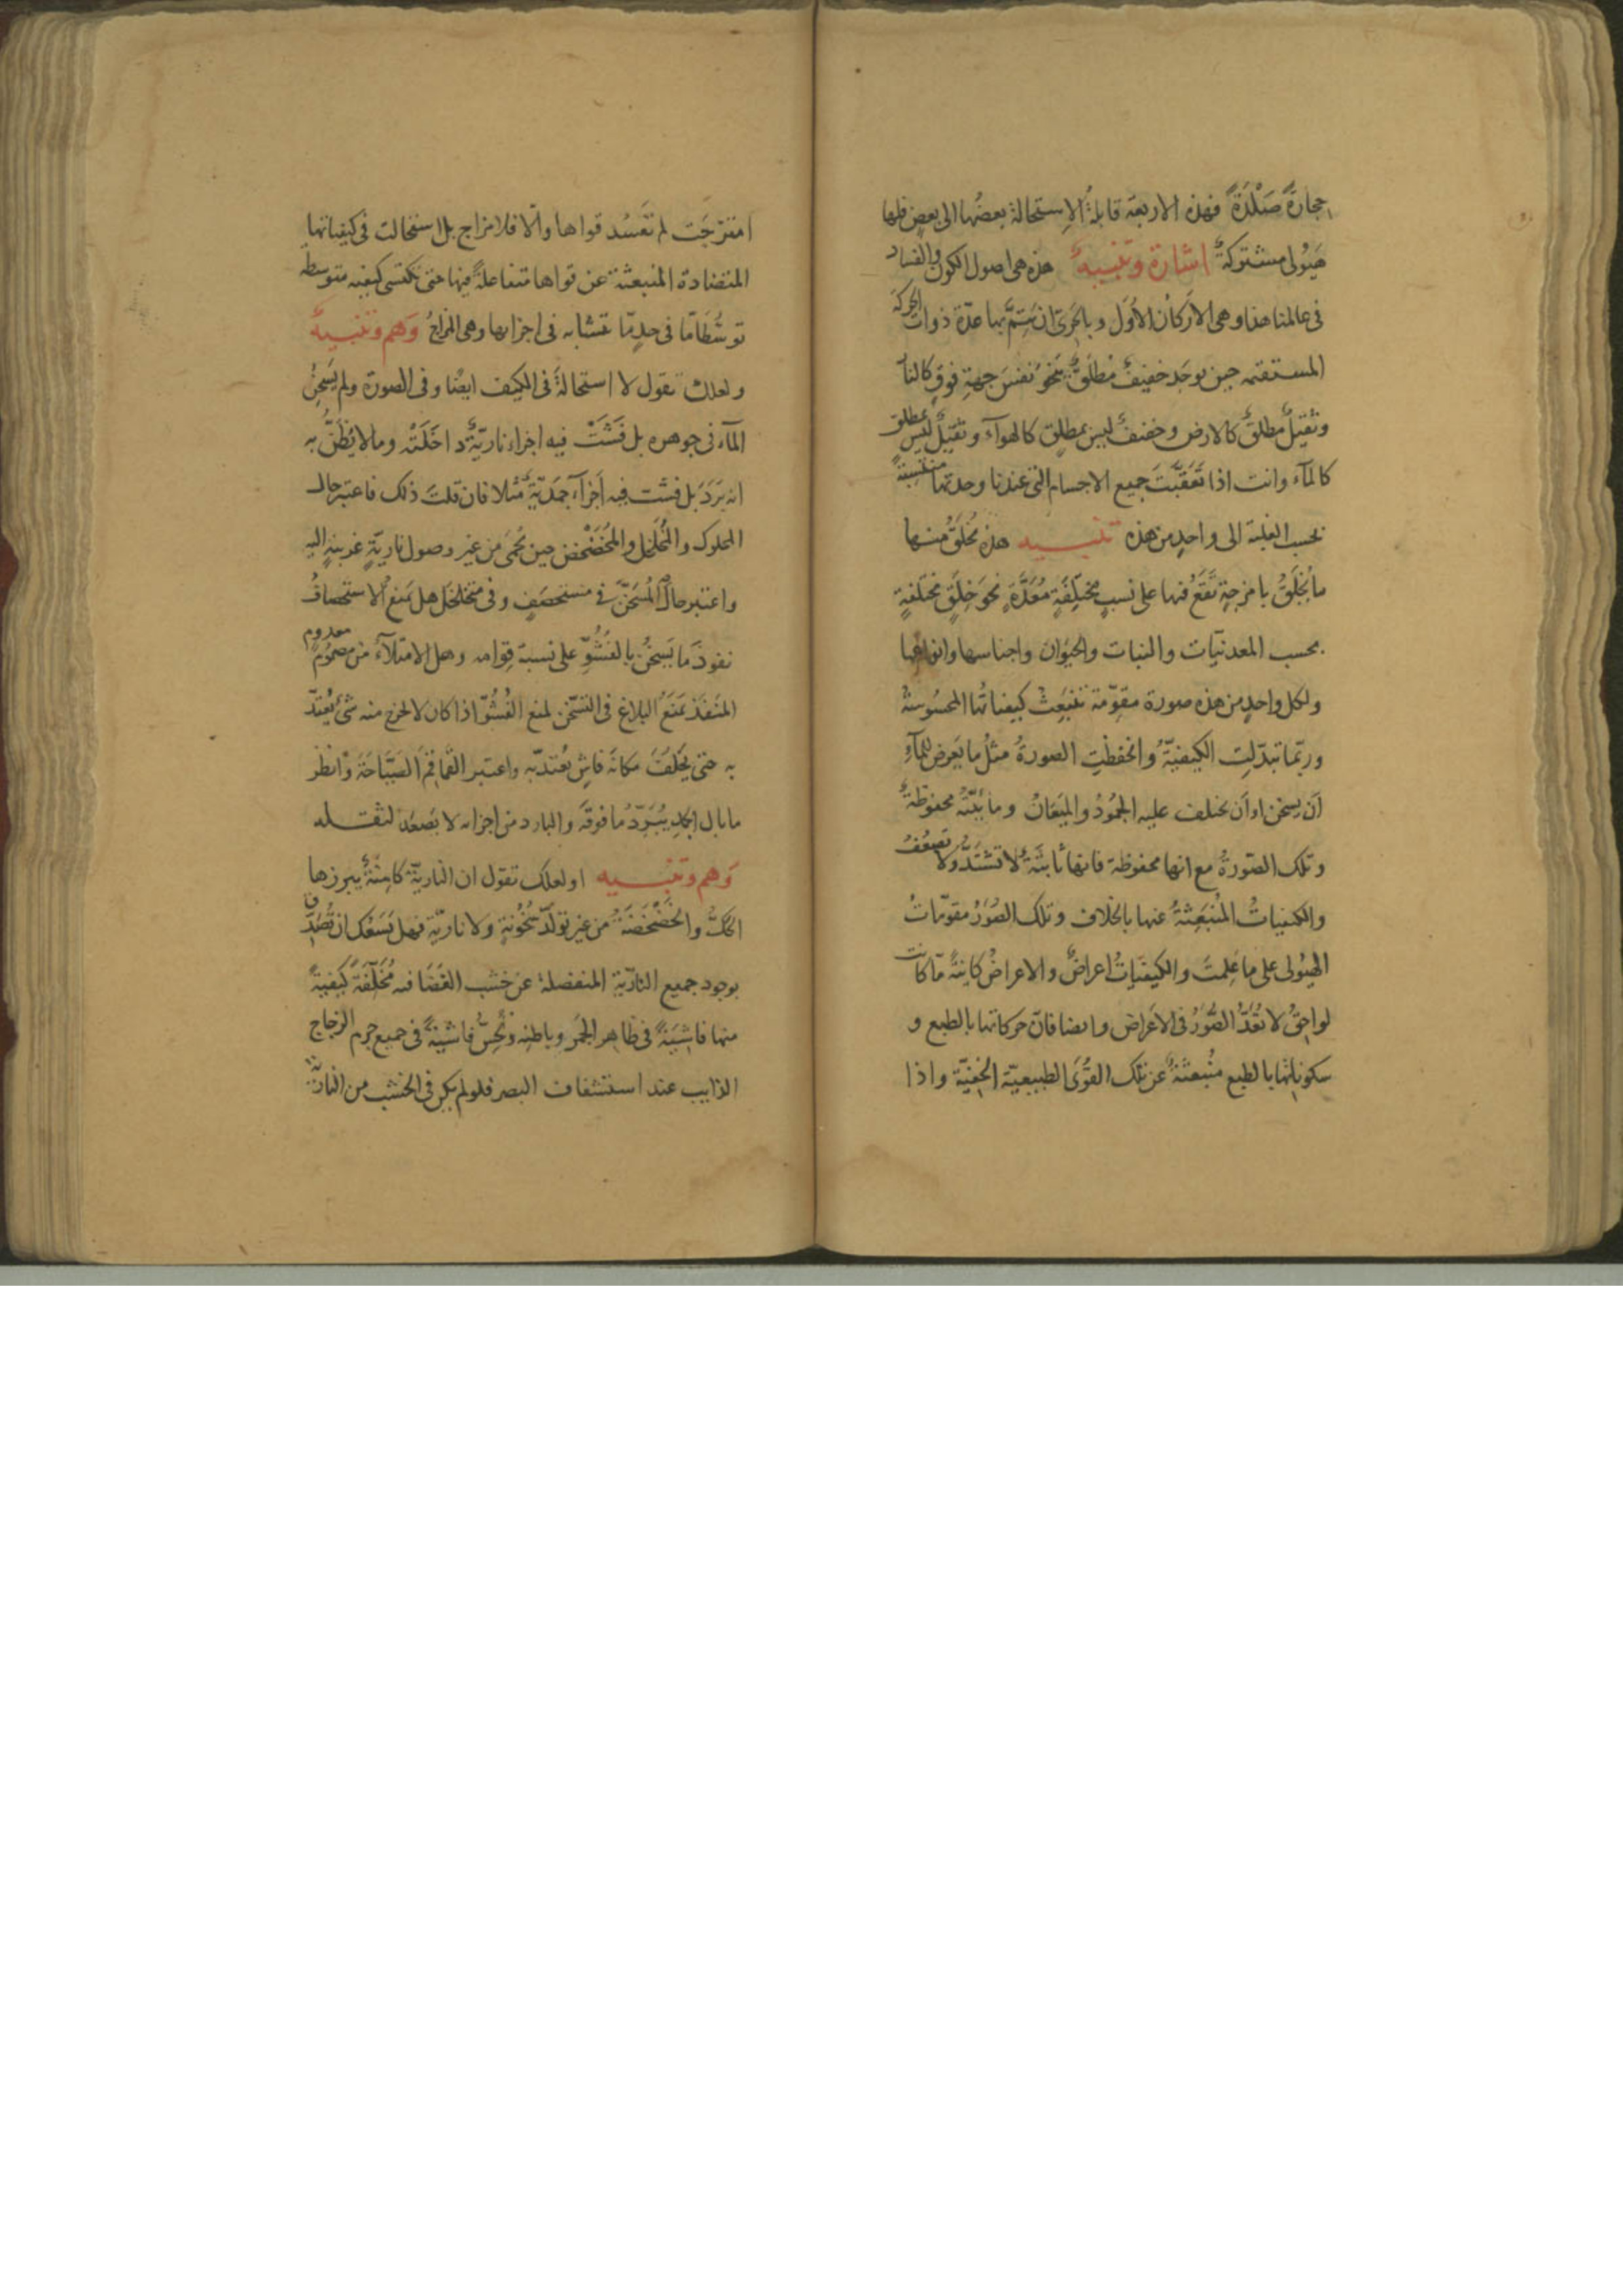 حجارةً صَلْدَةً فهذه الاربعة قابلةُ الاِستحالة بعضُها الى بعضٍ فلها
هَيُولى مشتركةٌ اشارة وتنبيهٌ هذه هى اصول الكون والفساد
فى عالمنا هذا وهى الاَركان الاُوَل وبالحَرىّ ان يتمّ بها عدّة ذوات الحركة
المستقيمه حين يوجَد خفيفٌ مُطلَقٌ يَنحُو نفسَ جهةِ فوقٍ كالنار
وثقيلٌ مطلقٌ كالارض وخفيفٌ ليس بمطلقٍ كالهوآء وثقيلٌ ليس بمطلق
كالمآء وانت اذا تَعَقَّبتَ جميع الاجسام التى عندنا وجدتَها منتسبةً
بحسب الغلبة الى واحدٍ من هذه تنبيه هذه يُخلَقُ منها
ما يُخلَقُ بامزجةٍ تَقَعُ فيها على نسبٍ مختلِفَةٍ مُعَدَّةٍ نحوَ خِلَقٍ مختلفةٍ
بحسب المعدنيّات والنبات والحيَوان واجناسها وانواعها
ولكل واحدٍ من هذه صورة مقوِّمة تنبَعِثُ كيفياتُها المحسُوسةُ
وربّما تبدّلتِ الكيفيّةُ وانحفظتِ الصورةُ مثلُ ما يَعرض للمآءِ
اَن يسخن او اَن يختلف عليه الجمُودُ والميَعانُ ومائيّتُه محفوظةٌ
وتلك الصّورةُ مع انها محفوظة فانها ثابتةٌ لا تشتدُّ ولا تضعُفُ
والكيفياتُ المُنبَعِثةُ عنها بالخلاف وتلك الصُوَرُ مقوّماتُ
الهيُولى على ما عَلِمتَ والكيفيّاتُ اعراضٌ والاعراضُ كاينةً ما كانت
لواحِقُ لا تُعَدُّ الصُّوَرُ فى الاعراض وايضا فانّ حركاتها بالطبع و
سكوناتها بالطبع منُبعثةٌ عن تلك القُوَى الطبيعيّة الخفيّة واذا
امتزجَت لم تفسُد قواها والّا فلا مزاج بل استحالت فى كيفياتها
المتضادة المنبعثة عن قواها متفاعلةً فيها حتى تكتسى كيفيه متوسطه
توسّطًا مّا فى حدٍ مّا تتشابه فى اجزائها وهى المزاجُ وَهم وتنبيهٌ
ولعلك تقول لا استحالةَ فى الكيف ايضًا وفى الصورة ولم يَسخن
المآء فى جوهره بل فَشَتْ فيه اجزاء ناريّةٌ داخَلَتْه وما لا يُظَنُّ به
انه بَرَدَ بل فشت فيه اَجزآء جَمَديّةٌ مثلا فان قلتَ ذلك فاعتبر حال
المحلوك والمُخَلخَل والمُخَضْخَض حين يُحمَى من غير وصول ناريّةٍ غريبةٍ اليه
واعتبر حالَ المُسَخَّن فى مستحصَفٍ وفى متخلخَل هل يَمنع الاستحصافُ
نفوذَ ما يَسخنُ بالفُشُوِّ على نسبة قِوامه وهل الامتلآءُ من مصمُومٍ معدوم
المنفَذ يَمنَعُ البلاغَ فى التسخّن لمنع الفُشُوّ اذا كان لا يخرج منه شئٌ يُعتدّ
به حتى يَخلُفَ مكانَه فاشٍ يُعتدّ به واعتبر القَماقِمَ الصيّاحَةَ وَانظر
ما بال الجَمَدِ يُبَرّدُ ما فوقَه والبارد من اجزائه لا يَصعَدُ لثقله
وَهم وتنبيه اولعلك تقول ان الناريّةَ كامِنَةٌ يبرزها
الحكُّ والخضْخَضَةُ من غير تولّد سُخُونةٍ ولا ناريّةٍ فهل يَسَعُك ان تُصدِّق
بوجود جميع الناريّةِ المنفصلة عن خشب الغَضَا فيه مُخلِّفَةً كيفيةً
منها فاشيَةً فى ظاهر الجَمر وباطنِه وتُحِسُّ فاشيَةً فى جميع جِرم الزجاج
الذايب عند استشفاف البصر فلو لم يكن فى الخشب من الناريّة